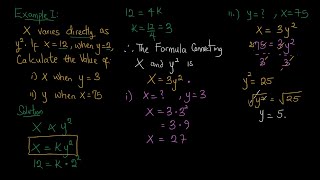 Example 1:
X varies directly as
y². If X=12, when y=2.
Calculate the Value of:
i) X when y = 3
ii) y when X=75
Solution
X ∝ y²
X = Ky²
12 = K·2²
12 = 4K
K = 12/4 = 3
∴ The Formula Connecting
X and y² is
X = 3y².
i) X = ?, y = 3
X = 3·3²
= 3·9
X = 27
ii) y = ?, X=75
X = 3y²
75/3 = 3y²/3
y² = 25
√y² = √25
y = 5.